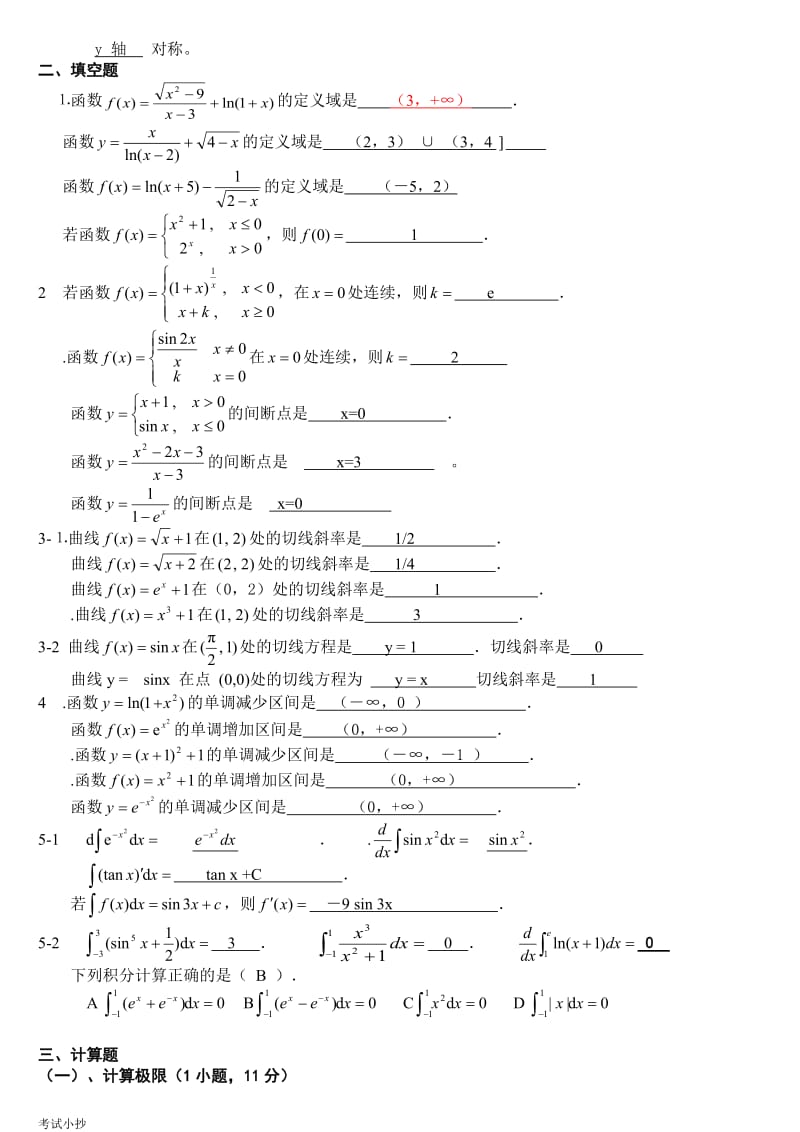 y 轴 对称。
二、填空题
1.函数 f(x) = √(x² − 9)/(x − 3) + ln(1 + x) 的定义域是 （3，+∞） ．
函数 y = x/ln(x − 2) + √(4 − x) 的定义域是 （2，3） ∪ （3，4 ]
函数 f(x) = ln(x + 5) − 1/√(2 − x) 的定义域是 （－5，2）
若函数 f(x) = { x² + 1, x ≤ 0; 2ˣ, x > 0 ，则 f(0) = 1 ．
2 若函数 f(x) = { (1 + x)^(1/x), x < 0; x + k, x ≥ 0 ，在 x = 0 处连续，则 k = e ．
.函数 f(x) = { sin 2x/x x ≠ 0; k x = 0 在 x = 0 处连续，则 k = 2
函数 y = { x + 1, x > 0; sin x, x ≤ 0 的间断点是 x=0 ．
函数 y = (x² − 2x − 3)/(x − 3) 的间断点是 x=3 。
函数 y = 1/(1 − eˣ) 的间断点是 x=0
3- 1.曲线 f(x) = √x + 1 在 (1, 2) 处的切线斜率是 1/2 ．
曲线 f(x) = √(x + 2) 在 (2, 2) 处的切线斜率是 1/4 ．
曲线 f(x) = eˣ + 1 在（0，2）处的切线斜率是 1 ．
.曲线 f(x) = x³ + 1 在 (1, 2) 处的切线斜率是 3 ．
3-2 曲线 f(x) = sin x 在 (π/2, 1) 处的切线方程是 y = 1 ．切线斜率是 0
曲线 y = sinx 在点 (0,0)处的切线方程为 y = x 切线斜率是 1
4 .函数 y = ln(1 + x²) 的单调减少区间是 （－∞，0 ） ．
函数 f(x) = e^(x²) 的单调增加区间是 （0，+∞） ．
.函数 y = (x + 1)² + 1 的单调减少区间是 （－∞，－1 ） ．
.函数 f(x) = x² + 1 的单调增加区间是 （0，+∞） ．
函数 y = e^(−x²) 的单调减少区间是 （0，+∞） ．
5-1 d∫e^(−x²)dx = e^(−x²)dx ． . d/dx ∫sin x²dx = sin x² ．
∫(tan x)′dx = tan x +C ．
若 ∫f(x)dx = sin 3x + c ，则 f′(x) = －9 sin 3x ．
5-2 ∫₋₃³ (sin⁵ x + 1/2)dx = 3 ． ∫₋₁¹ x³/(x² + 1) dx = 0 ． d/dx ∫₁ᵉ ln(x + 1)dx = 0
下列积分计算正确的是（ B ）．
A ∫₋₁¹ (eˣ + e⁻ˣ)dx = 0 B ∫₋₁¹ (eˣ − e⁻ˣ)dx = 0 C ∫₋₁¹ x²dx = 0 D ∫₋₁¹ | x |dx = 0
三、计算题
（一）、计算极限（1 小题，11 分）
考试小抄